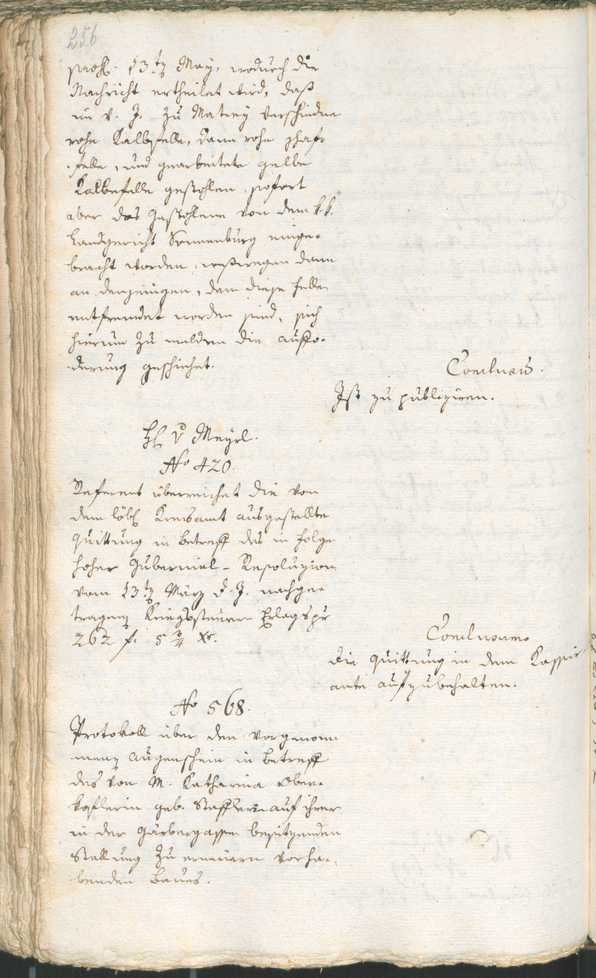 256
praes. 13ten May, wodurch die
Nachricht ertheilet wird, daß
im v. J. zu Matrey verschiedene
rohe Kalbsfelle, dann rohe Schaf-
felle, und gearbeitete gelbe
Kalbsfelle gestohlen, sofort
aber das Gestohlene von dem k.k.
Landgericht Sonnenburg einge-
bracht worden, weßwegen dann
an denjenigen, dem diese Felle
entfremdet worden sind, sich
hierum zu melden die auffo-
derung geschiehet.
Conclusum.
Ist zu publiziren.
H v Mayrl.
No 420.
Referent überreichet die von
dem löbl Kreisamt ausgestellte
Quittung in betreff des in folge
hoher Gubernial-Resoluzion
vom 13ten März d. J. nachge-
tragenen Kriegssteuer Erlags pr
262 f. 5 3/4 xr.
Conclusum
die Quittung in dem Kassir
amte aufzubehalten.
No 568.
Protokoll über den vorgenom-
menen augenschein in betreff
des von M. Katharina Ober-
koflerin geb. Stafflerin auf ihrer
in der Gärbergasse besitzenden
Stallung zu erneuern vorha-
benden Baues.